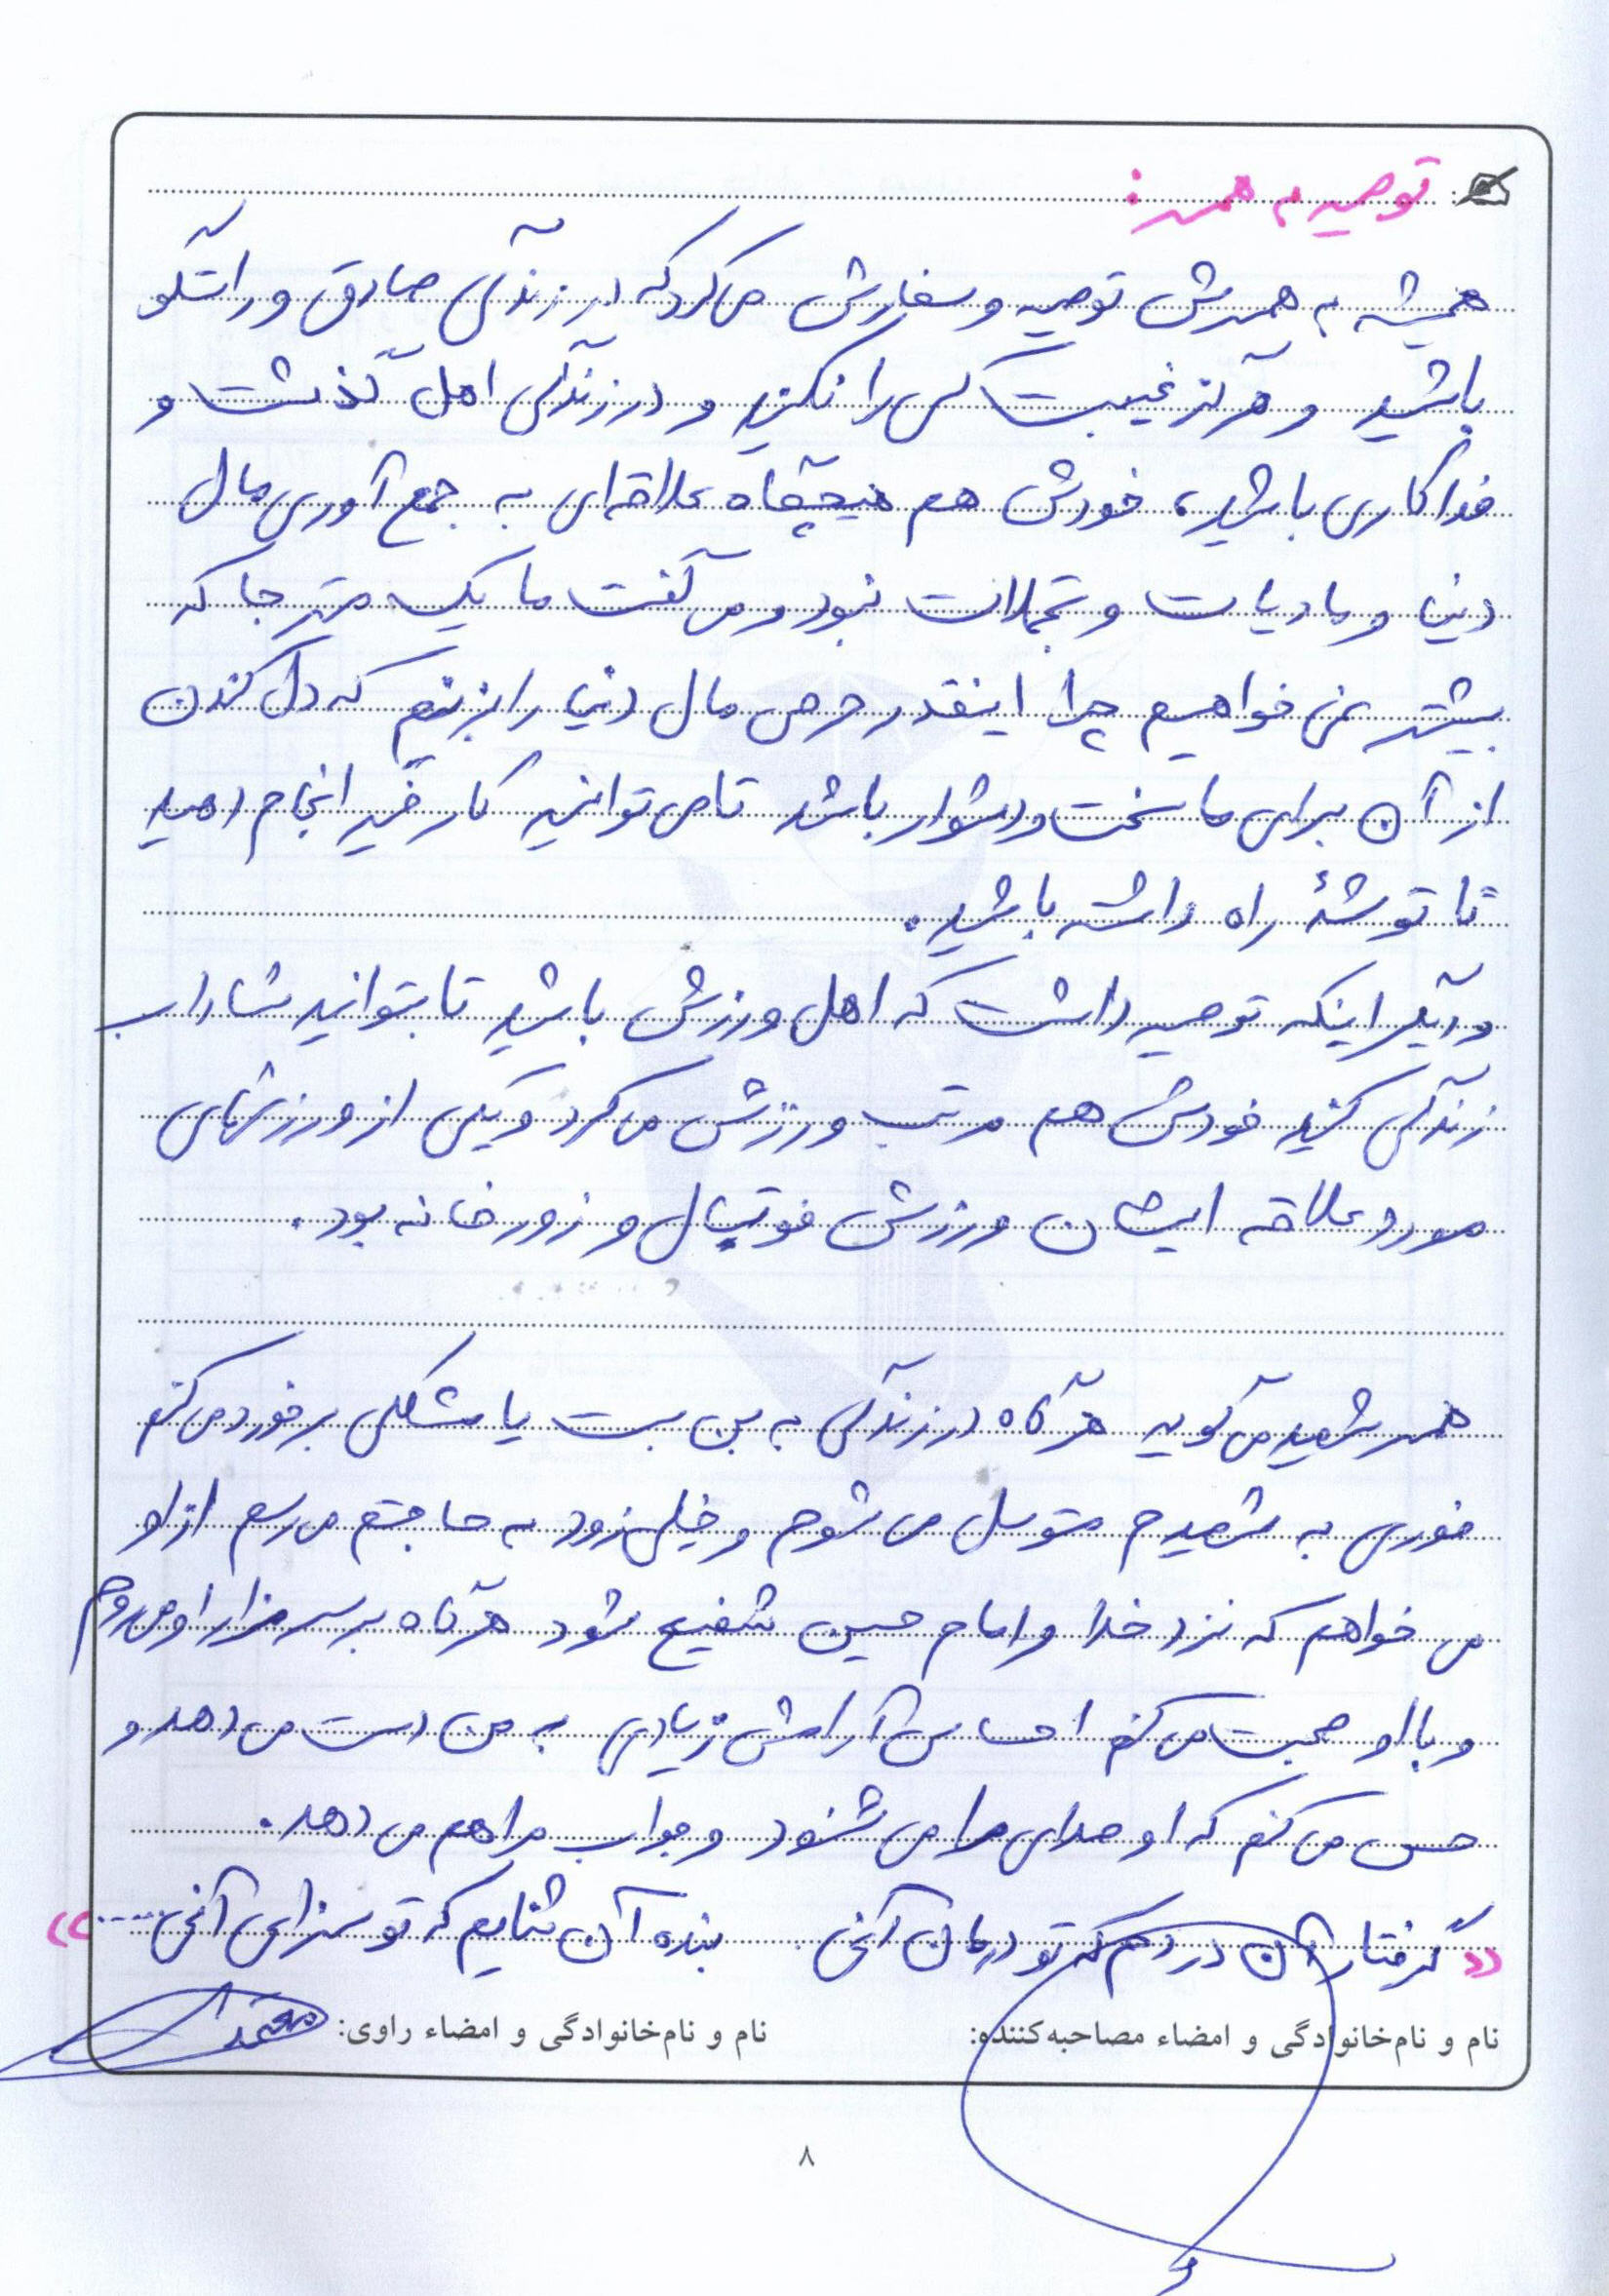 توصیه به همسر:
همیشه به همسرش توصیه و سفارش می‌کرد که در زندگی صادق و راستگو
باشید و هرگز غیبت کسی را نکنید و در زندگی اهل گذشت و
فداکاری باشید، خودش هم هیچگاه علاقه‌ای به جمع آوری مال
دنیا و مادیات و تجملات نبود و می گفت ما یک متر جا که
بیشتر نمی خواهیم چرا اینقدر حرص مال دنیا را بزنیم که دل کندن
از آن برای ما سخت و دشوار باشد تا می توانید کار خیر انجام دهید
تا توشۀ راه داشته باشید.
و دیگر اینکه توصیه داشت که اهل ورزش باشید تا بتوانید شاداب
زندگی کنید خودش هم مرتب ورزش می کرد و یکی از ورزشهای
مورد علاقه ایشان ورزش فوتبال و زورخانه بود.
همسر شهید می گوید هرگاه در زندگی به بن بست یا مشکلی برخورد می کنم
فوری به شهیدم متوسل می شوم و خیلی زود به حاجتم می رسم از او
می خواهم که نزد خدا و امام حسین شفیع شود هرگاه بر سر مزار او می روم
و با او صحبت می کنم احساس آرامش زیادی به من دست می دهد و
حس می کنم که او صدای مرا می شنود و جواب مرا هم می دهد.
«گرفتار آن دردم که تو درمان آنی بنده آن ثنایم که تو سزای آنی.....»
نام و نام‌خانوادگی و امضاء مصاحبه‌کننده: نام و نام‌خانوادگی و امضاء راوی:
۸